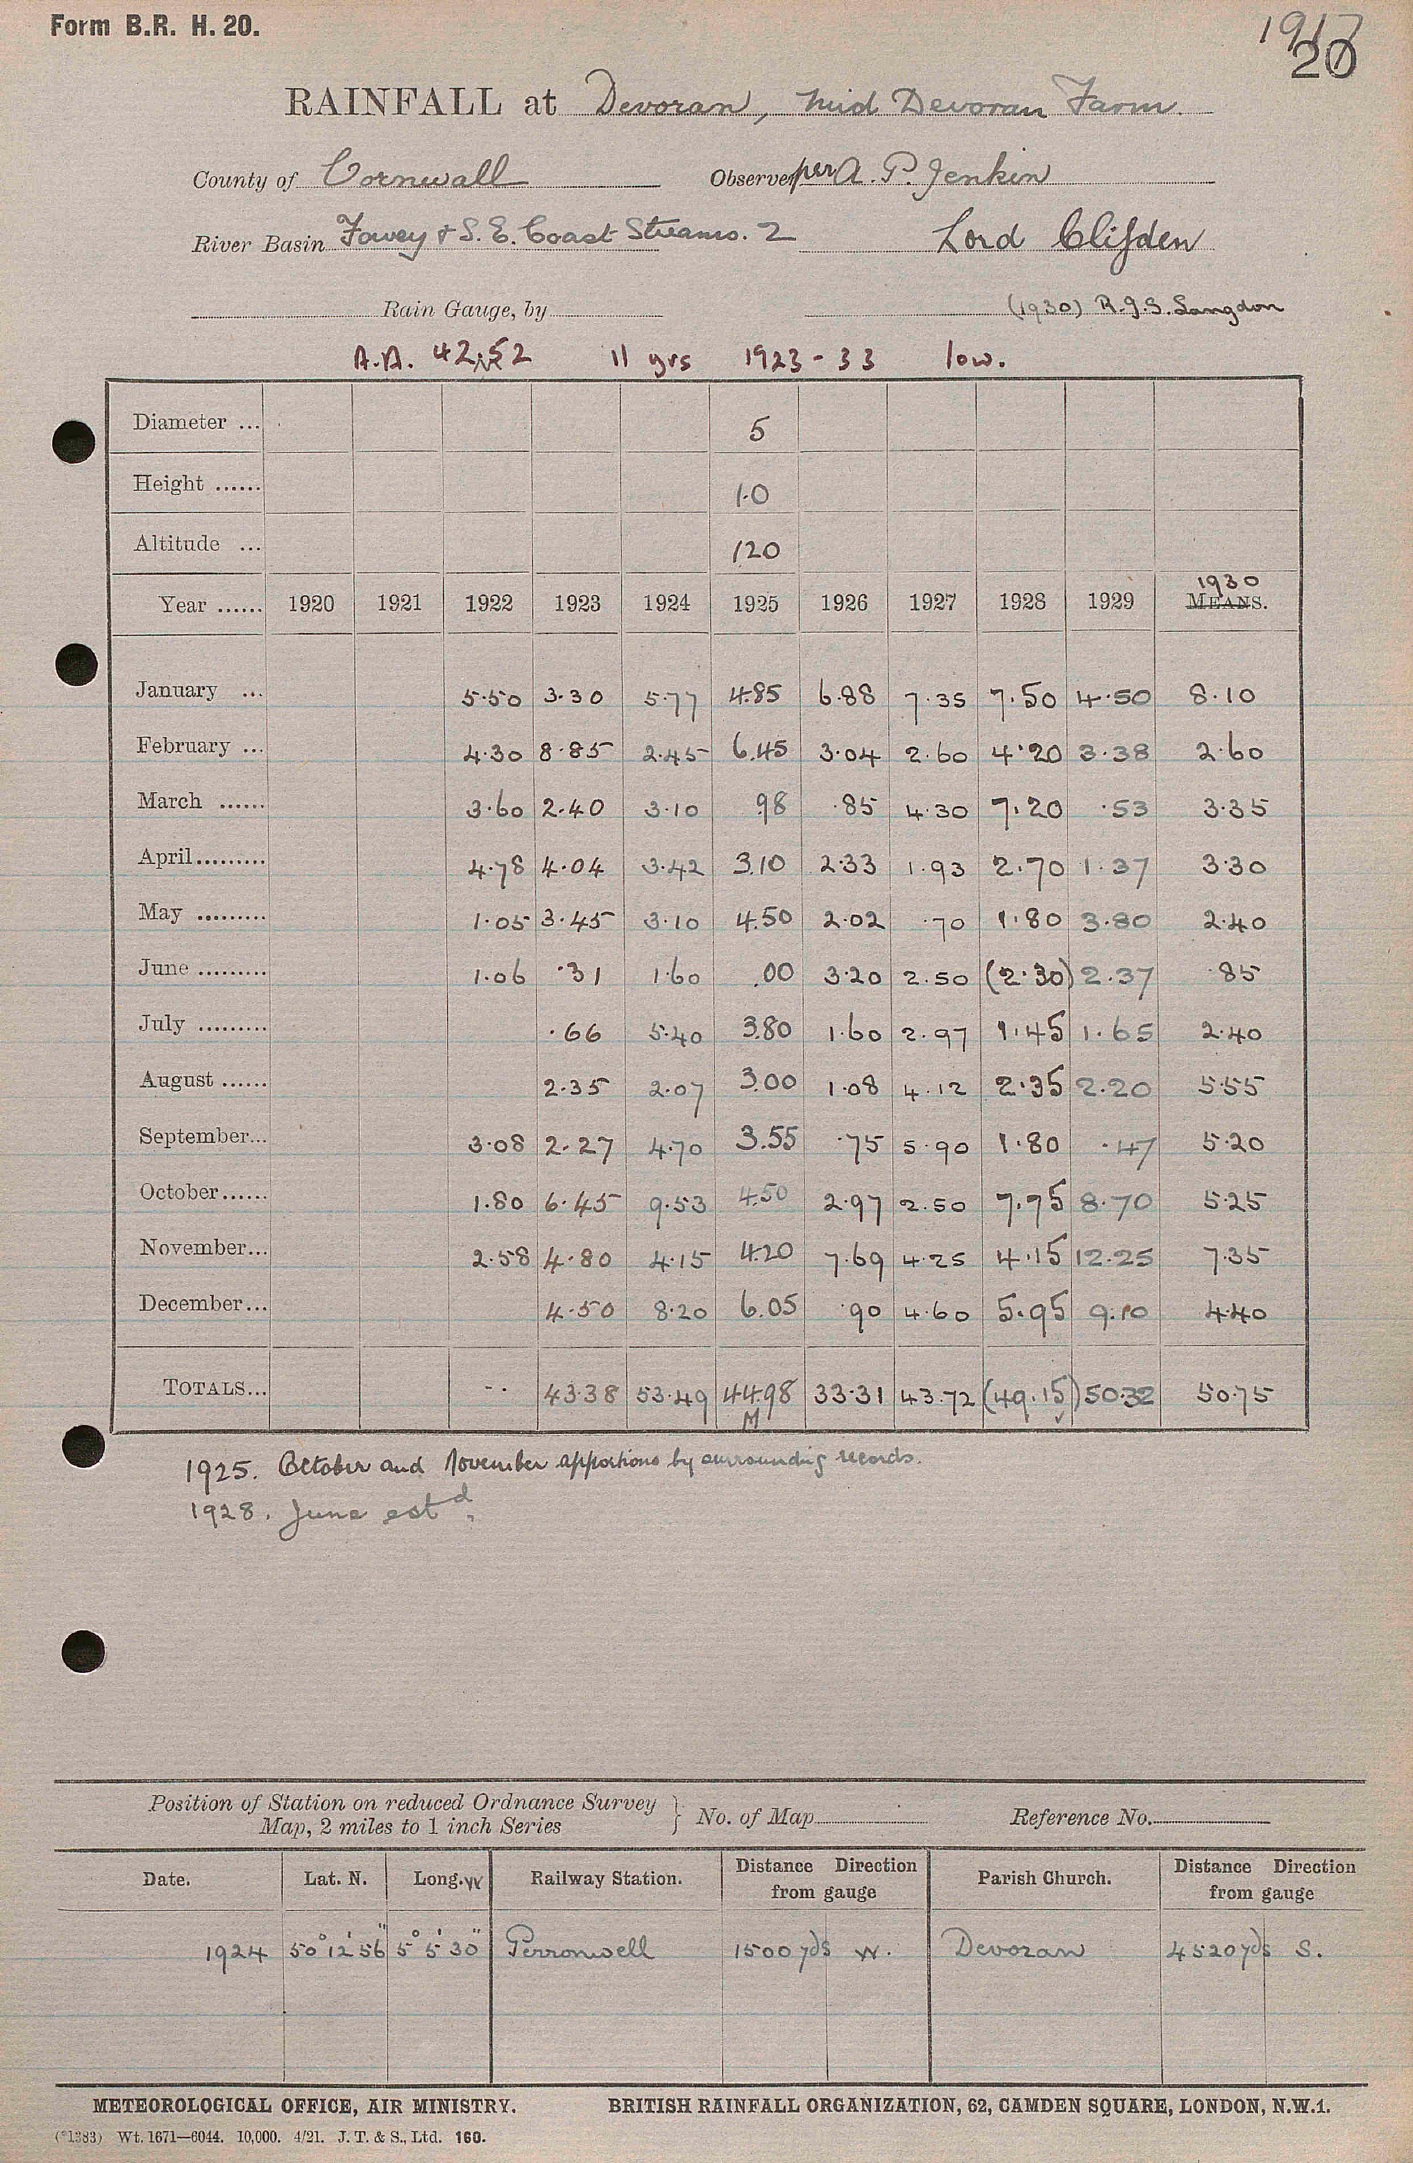 Form B.R. H. 20.
1917
20
RAINFALL at Devoran, Mid Devoran Farm.
County of Cornwall Observer per A. P. Jenkin
River Basin Fowey & S. E. Coast Streams. 2 Lord Clifden
Rain Gauge, by (1930) R.J.S. Langdon
A.A. 42.52 11 yrs 1923 - 33 low.
Diameter ... 5
Height ...... 1.0
Altitude ... 120
Year ...... 1920 1921 1922 1923 1924 1925 1926 1927 1928 1929 1930 MEANS.
January ... 5.50 3.30 5.77 4.85 6.88 7.35 7.50 4.50 8.10
February ... 4.30 8.85 2.45 6.45 3.04 2.60 4.20 3.38 2.60
March ...... 3.60 2.40 3.10 .98 .85 4.30 7.20 .53 3.35
April......... 4.78 4.04 3.42 3.10 2.33 1.93 2.70 1.37 3.30
May ......... 1.05 3.45 3.10 4.50 2.02 .70 1.80 3.80 2.40
June ......... 1.06 .31 1.60 .00 3.20 2.50 (2.30) 2.37 .85
July ......... .66 5.40 3.80 1.60 2.97 1.45 1.65 2.40
August ...... 2.35 2.07 3.00 1.08 4.12 2.35 2.20 5.55
September... 3.08 2.27 4.70 3.55 .75 5.90 1.80 .47 5.20
October...... 1.80 6.45 9.53 4.50 2.97 2.50 7.75 8.70 5.25
November... 2.58 4.80 4.15 4.20 7.69 4.25 4.15 12.25 7.35
December... 4.50 8.20 6.05 .90 4.60 5.95 9.10 4.40
TOTALS... -. 43.38 53.49 44.98 33.31 43.72 (49.15) 50.32 50.75
M
1925. October and November apportions by surrounding records.
1928. June estd.
Position of Station on reduced Ordnance Survey
Map, 2 miles to 1 inch Series } No. of Map Reference No.
Date. Lat. N. Long. W Railway Station. Distance Direction from gauge Parish Church. Distance Direction from gauge
1924 50° 12' 56" 5° 5' 30" Perronwell 1500 yds W. Devoran 4520 yds S.
METEOROLOGICAL OFFICE, AIR MINISTRY. BRITISH RAINFALL ORGANIZATION, 62, CAMDEN SQUARE, LONDON, N.W.1.
(*1383) Wt. 1671—6044. 10,000. 4/21. J. T. & S., Ltd. 160.